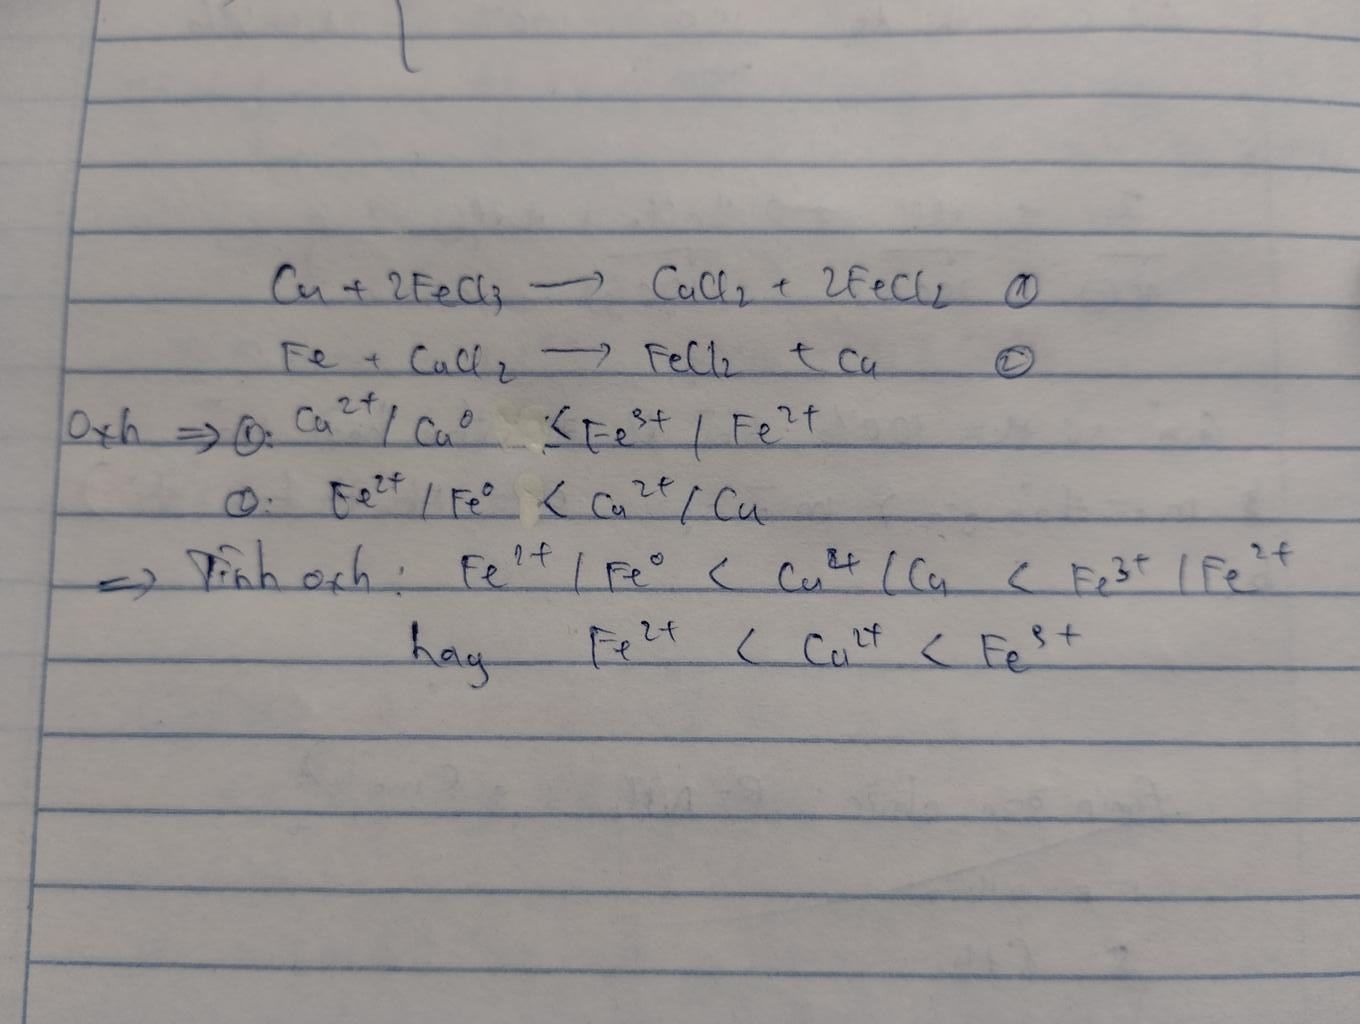 Cu + 2FeCl3 → CuCl2 + 2FeCl2 ①
Fe + CuCl2 → FeCl2 + Cu ②
Oxh ⇒ ①: Cu²⁺ / Cu⁰ < Fe³⁺ / Fe²⁺
②: Fe²⁺ / Fe⁰ < Cu²⁺ / Cu
⇒ Tính oxh : Fe²⁺ / Fe⁰ < Cu²⁺ / Cu < Fe³⁺ / Fe²⁺
hay Fe²⁺ < Cu²⁺ < Fe³⁺